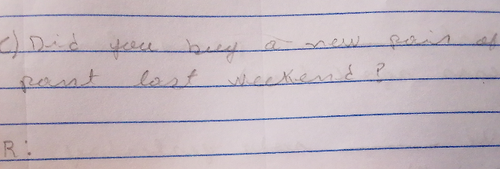 c) Did you buy a new pair of
pant last weekend?
R: